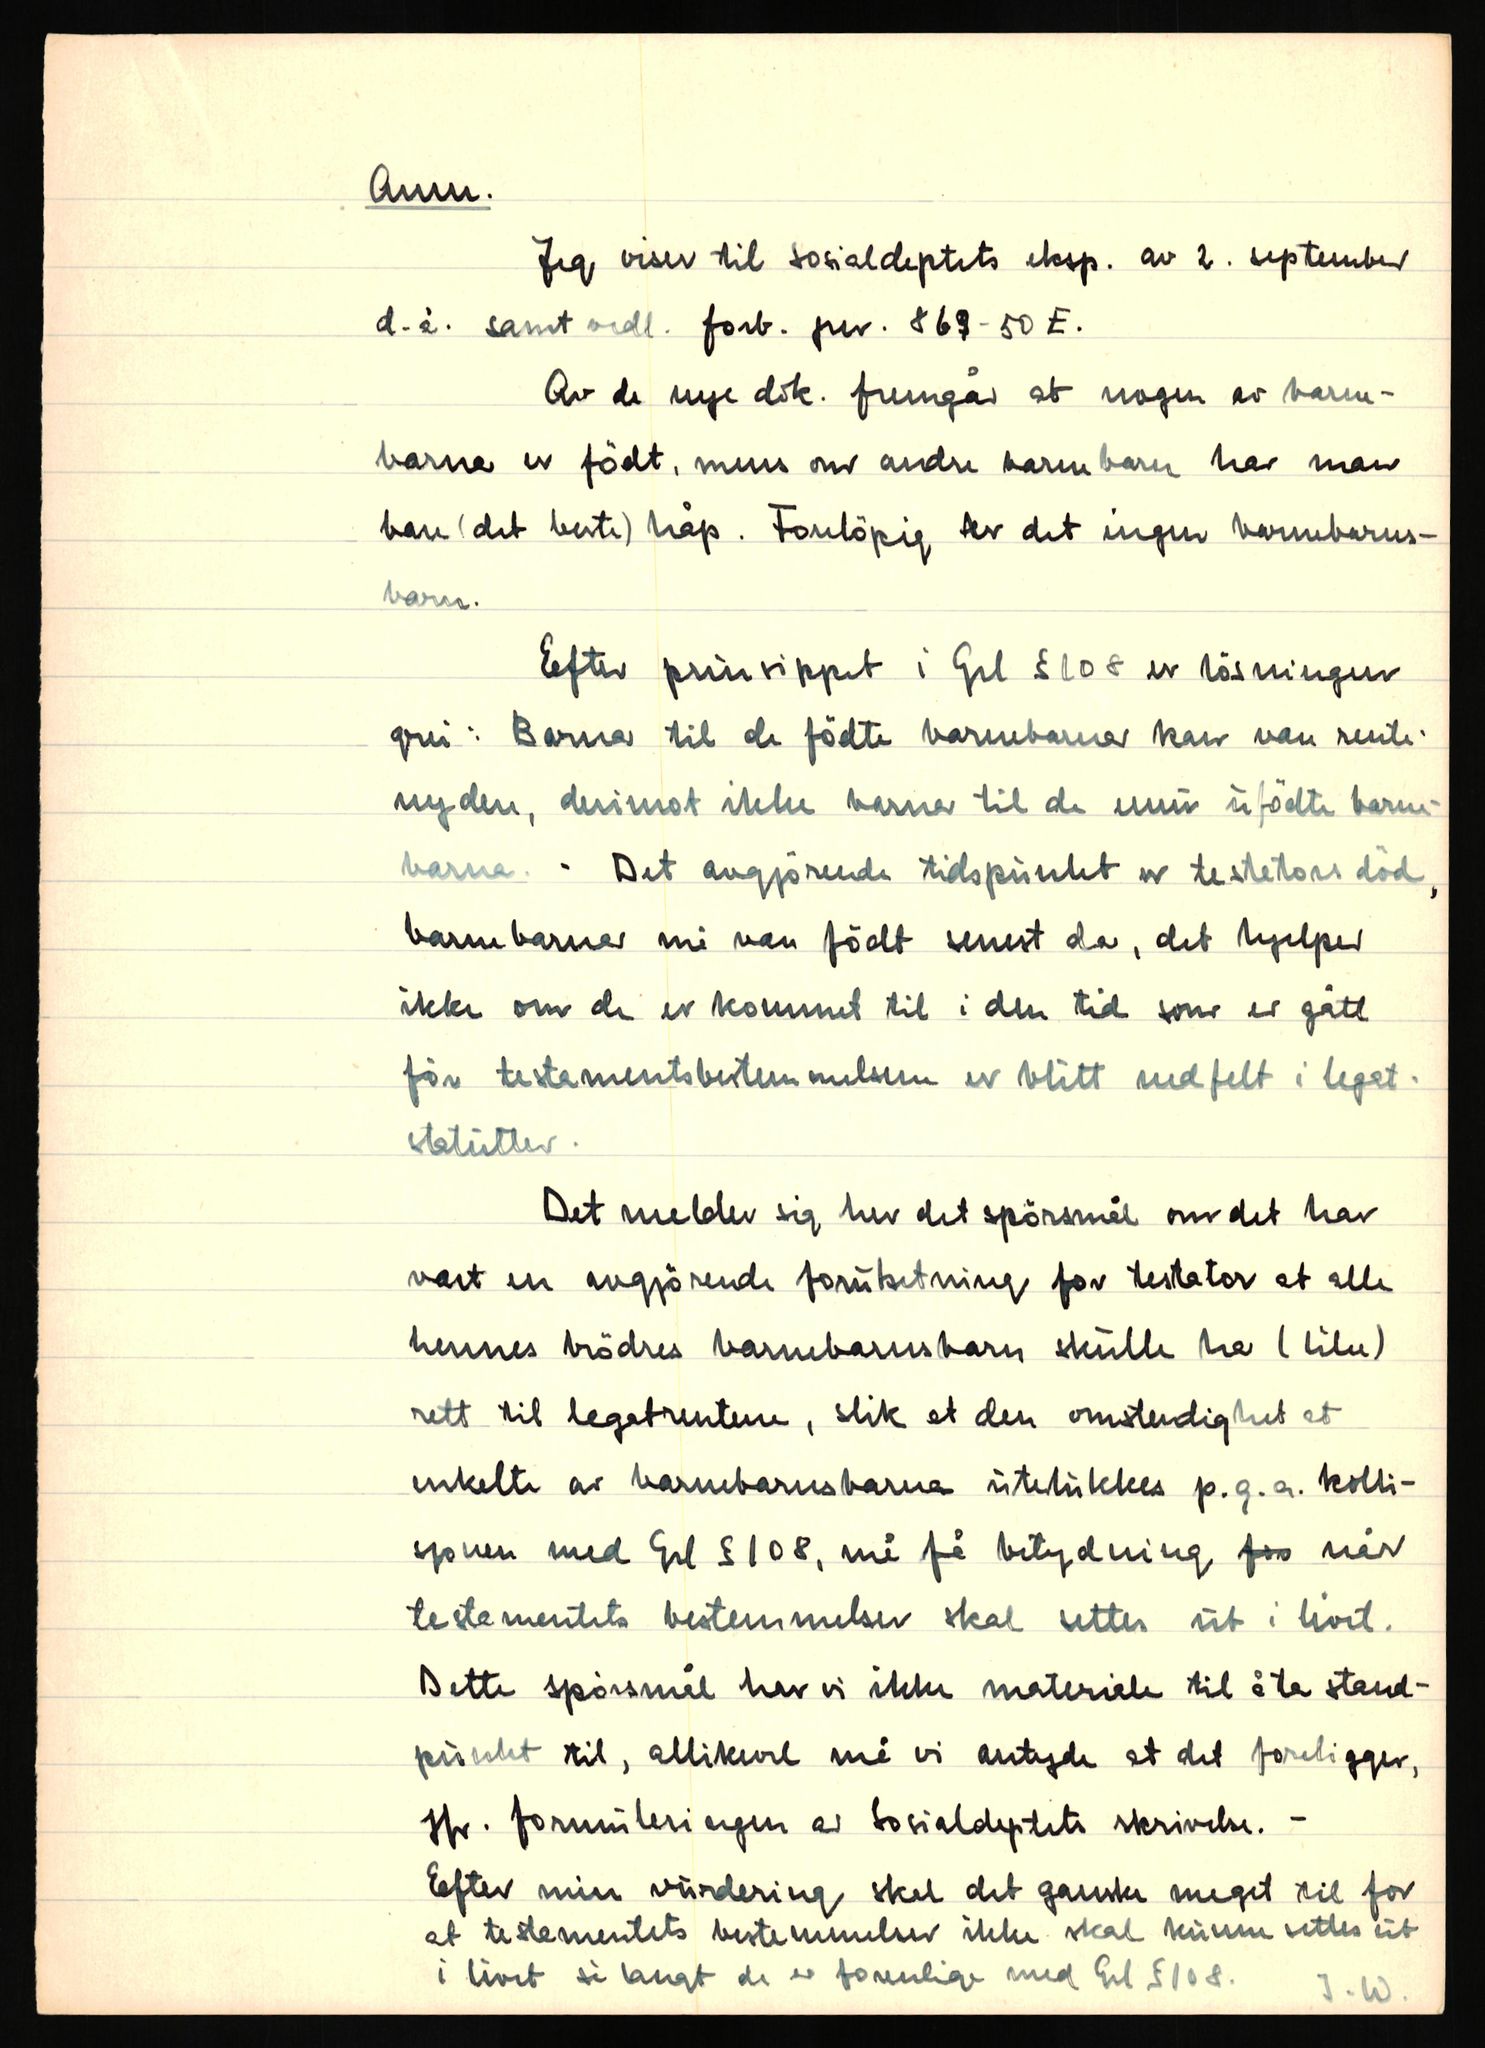 Anm.
Jeg viser til Sosialdeptets eksp. av 2. september
d.å. samt vedl. forb. jnr. 869-50 E.
Av de nye dok. fremgår at nogen av barne-
barna er födt, mens om andre barnebarn har man
bare (det beste) håp. Forelöpig er det ingen barnebarns-
barn.
Efter prinsippet i Grl § 108 er lösningen
grei: Barna til de födte barnebarna kan være rente-
nydere, derimot ikke barna til de ennu ufödte barne-
barna. - Det avgjörende tidspunktet er testators död,
barnebarna må være födt senest da, det hjelper
ikke om de er kommet til i den tid som er gått
för testamentsbestemmelsene er blitt nedfelt i legat-
statutter.
Det melder sig her det spörsmål om det har
vært en avgjörende forutsetning for testator at alle
hennes brödres barnebarnsbarn skulle ha (like)
rett til legatrentene, slik at den omstendighet at
enkelte av barnebarnsbarna utelukkes p.g.a. kolli-
sjonen med Grl § 108, må få betydning for når
testamentets bestemmelser skal settes ut i livet.
Dette spörsmål har vi ikke materiale til å ta stand-
punkt til, allikevel må vi antyde at det foreligger,
jfr. formuleringen av Sosialdeptets skrivelse. -
Efter min vurdering skal det ganske meget til for
at testamentets bestemmelser ikke skal kunne settes ut
i livet så langt de er forenlige med Grl § 108.
J.W.